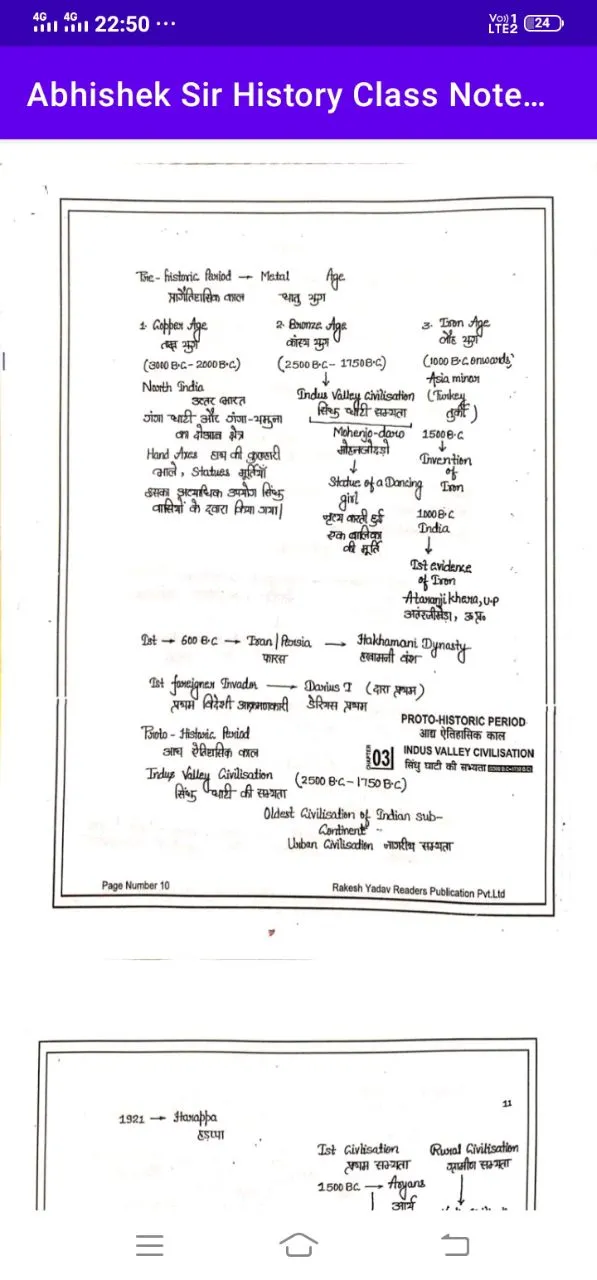 4G 4G 22:50 ...
Vo)) 1 LTE2 24
Abhishek Sir History Class Note...
Pre-historic Period → Metal Age
प्रागैतिहासिक काल धातु युग
1. Copper Age
ताम्र युग
(3000 B.C - 2000 B.C)
North India
उत्तर भारत
गंगा घाटी और गंगा-यमुना
का दोआब क्षेत्र
Hand Axes हाथ की कुल्हाड़ी
भाले, Statues मूर्तियाँ
इसका अत्यधिक उपयोग सिंधु
वासियों के द्वारा किया गया|
2. Bronze Age
कांस्य युग
(2500 B.C - 1750 B.C)
↓
Indus Valley Civilisation
सिंधु घाटी सभ्यता
Mohenjo-daro
मोहनजोदड़ो
↓
Statue of a Dancing
girl
नृत्य करती हुई
एक बालिका
की मूर्ति
3. Iron Age
लौह युग
(1000 B.C onwards)
Asia minor
(Turkey
तुर्की)
1500 B.C
↓
Invention
of
Iron
1000 B.C
India
↓
Ist evidence
of Iron
Ataranjikhera, U.P
अतंरजीखेड़ा, उ.प्र.
Ist → 600 B.C → Iran / Persia → Hakhamani Dynasty
फारस हखामनी वंश
Ist foreigner Invador → Darius I (दारा प्रथम)
प्रथम विदेशी आक्रमणकारी डेरियस प्रथम
PROTO-HISTORIC PERIOD
आद्य ऐतिहासिक काल
CHAPTER 03 INDUS VALLEY CIVILISATION
सिंधु घाटी की सभ्यता
Proto - Historic Period
आद्य ऐतिहासिक काल
Indus Valley Civilisation (2500 B.C - 1750 B.C)
सिंधु घाटी की सभ्यता
Oldest Civilisation of Indian sub-
Continent
Urban Civilisation नागरीय सभ्यता
Page Number 10
Rakesh Yadav Readers Publication Pvt.Ltd
11
1921 → Harappa
हड़प्पा
Ist Civlisation
प्रथम सभ्यता
Rural Civilisation
ग्रामीण सभ्यता
1500 BC. → Aryans
आर्य